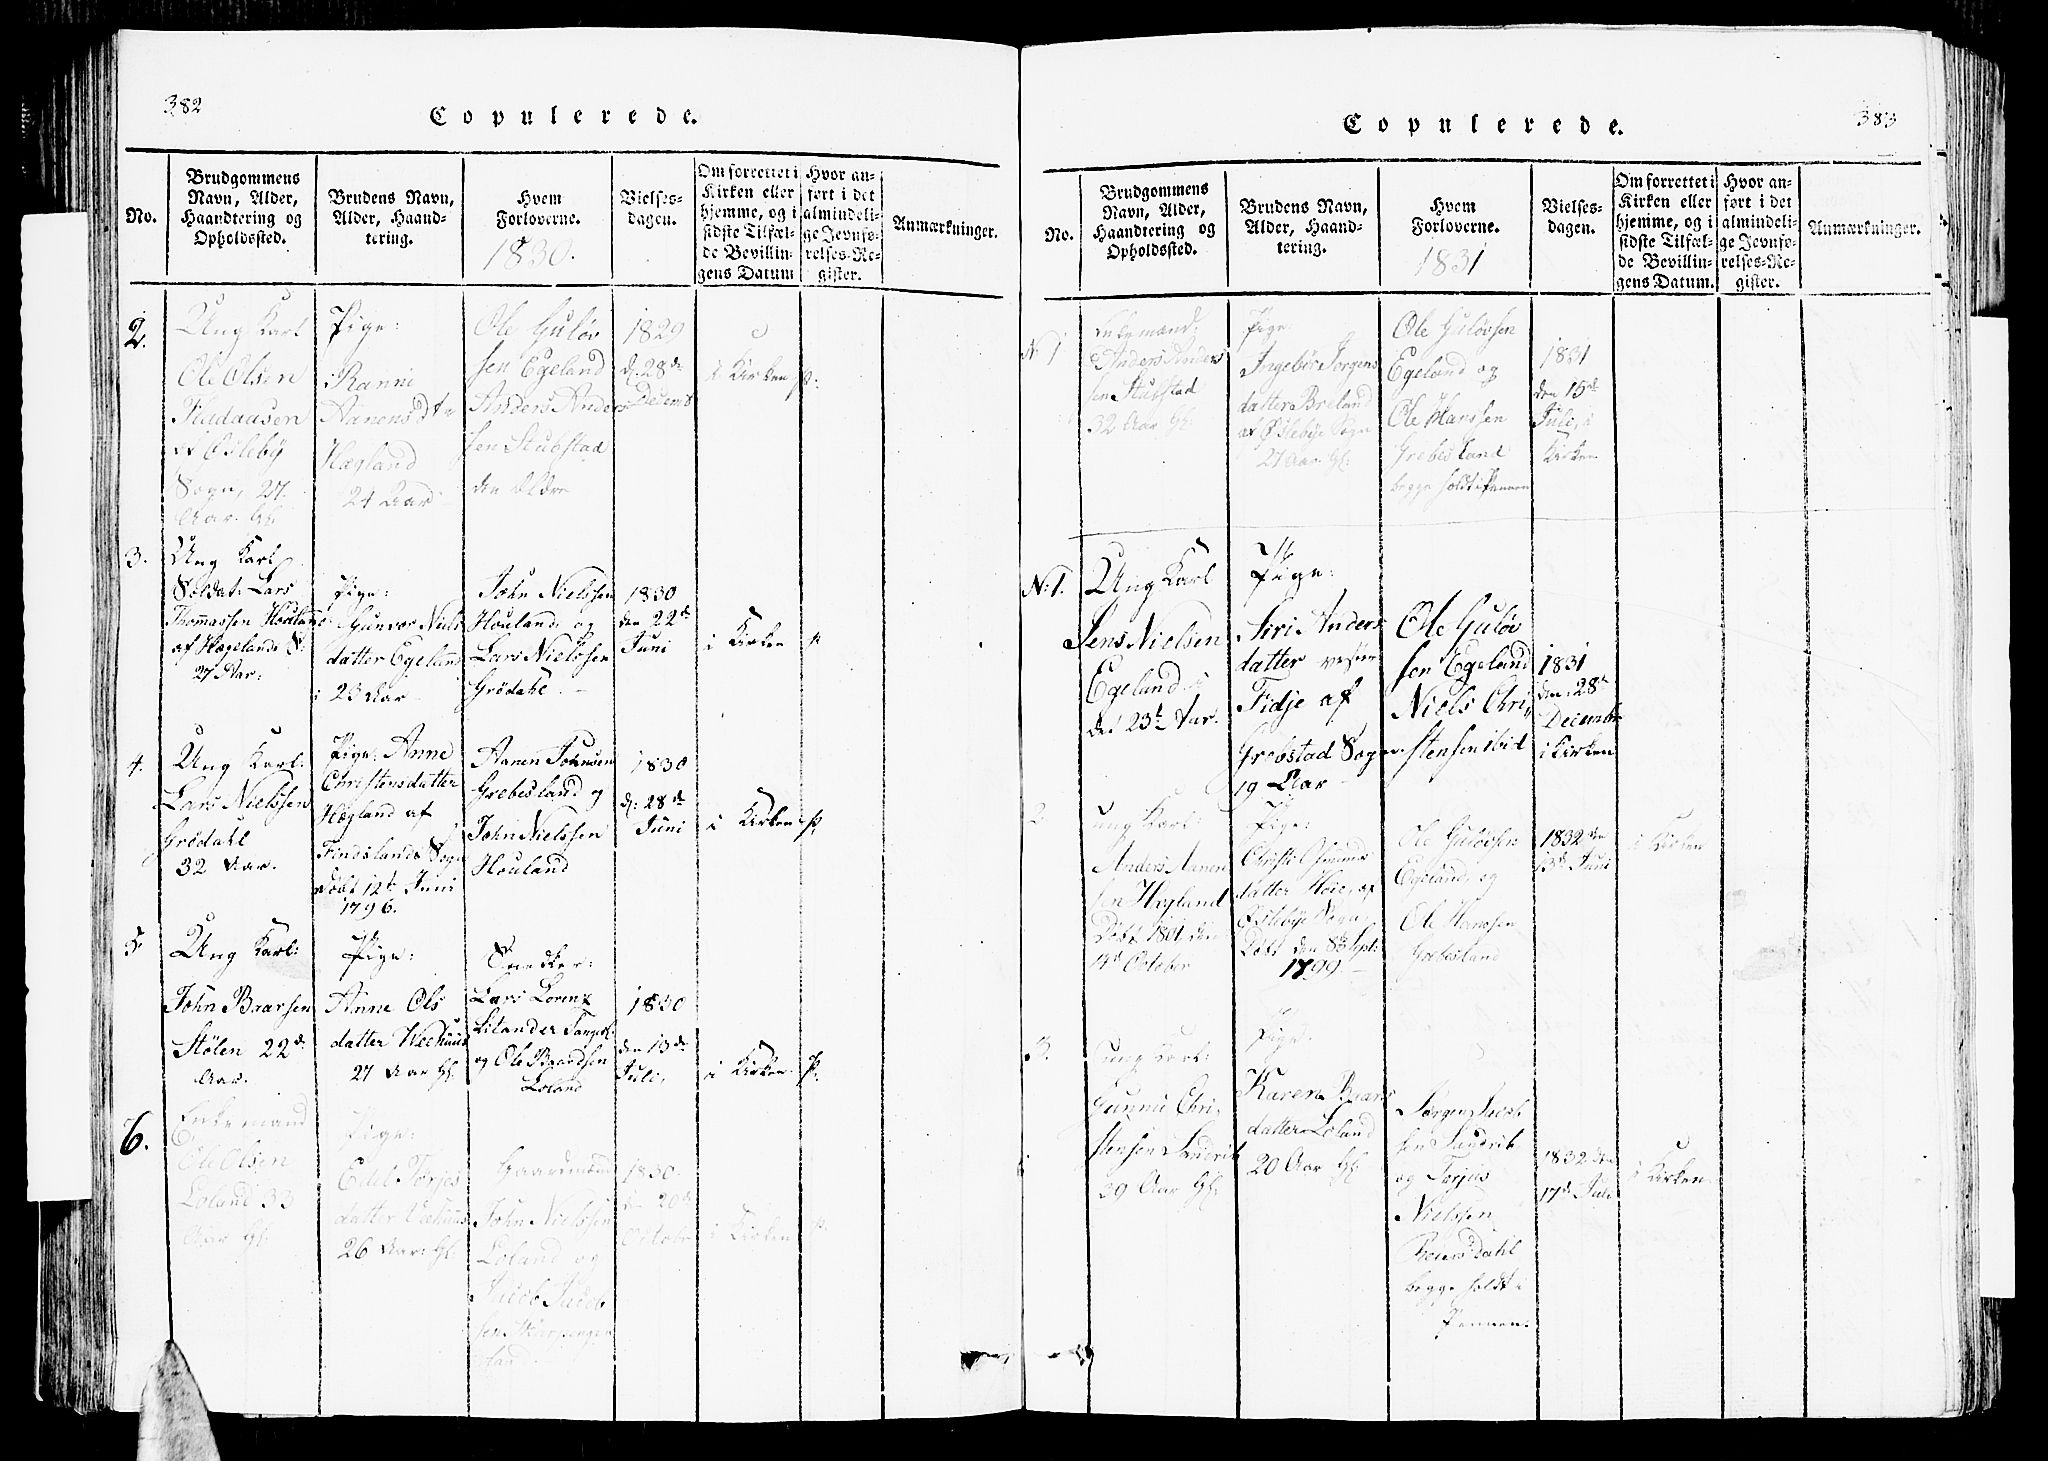 382
Copulerede.
No.
Brudgommens
Navn, Alder,
Haandtering og
Opholdssted.
Brudens Navn,
Alder, Haand-
tering.
Hvem
Forloverne.
1830.
Vielses-
dagen.
Om forrettet i
Kirken eller
hjemme, og i
sidste Tilfæl-
de Bevillin-
gens Datum
Hvor an-
ført i det
almindeli-
ge Jevnfø-
relses-Re-
gister.
Anmærkninger.
2.
Ung Karl
Ole Olsen
af Øsleby
Sogn, 27
Aar. Gl.
Pige:
Ranni
Aanensdtr
Hægland
24 Aar
Ole Guløv
sen Egeland
Anders Anders
sen Stubstad
den Ældre
1829
d. 28de
Decemb
i Kirken
p.
3.
Ung Karl
Soldat: Lars
Thomassen Houland
af Hægelands S:
27 Aar:
Pige:
Gunvor Niels
datter Egeland
23 Aar
John Nielssen
Houland og
Lars Nielssen
Grödahl.
1830
den 22de
Juni
i Kirken
p
4.
Ung Karl:
Lars Nielssen
Grödahl
32 Aar.
Pige: Anne
Christensdatter
Hægland af
Findslands Sogn
döbt 12te Juni
1796.
Aanen Johnsen
Grebesland og
John Nielssen
Houland
1830
d: 28de
Juni
i Kirken
p.
5
Ung Karl:
John Baarsen
Stölen 22de
Aar.
Pige:
Anne Ols
datter Weehuus
27 Aar Gl.
Snedker:
Lars Lorenz
Litander
og Ole Baardsen
Loland
1830
den 13de
Juli,
i Kirken
p.
6.
Enkemand
Ole Olsen
Loland 33
Aar Gl:
Pige:
Edel Torjes
datter Veehuus
26 Aar: Gl.
Gaardmand
John Nielssen
Loland og
Jacob Jacob
sen
land
1830.
d. 20de
Octobr
i Kirken
p.
383
Copulerede.
No.
Brudgommens
Navn, Alder,
Haandtering og
Opholdssted.
Brudens Navn,
Alder, Haand-
tering.
Hvem
Forloverne.
1831
Vielses-
dagen.
Om forrettet i
Kirken eller
hjemme, og i
sidste Tilfæl-
de Bevillin-
gens Datum.
Hvor an-
ført i det
almindeli-
ge Jevnfø-
relses-Re-
gister.
Anmærkninger.
N 1
Enkemand:
Anders Anders
sen Stubstad
32 Aar Gl:
Pige
Ingebör Jörgens
datter Breland
af Øslebye Sogn
27 Aar. Gl:
Ole Gulövsen
Egeland og
Ole Hanssen
Grebesland
begge holdt i Pennen
1831
den 15de
Juli, i
Kirken
N: 1.
Ung Karl
Jens Nielsen
Egeland
23 Aar.
Pige:
Siri Anders
datter
Fidje af
Grobstad Sogn
19 Aar
Ole Gulöv
sen Egeland
Niels Chri,
stensen ibid
1831
den: 28de
Decembr
i Kirken
2
ung Karl:
Anders Aanen
sen Hægland
Döbt 1801 den
14de October
Pige:
Christi
datter Höie, af
Øslebye Sogn,
Döbt den 8de Sept:
1799.
Ole Gulövsen
Egeland, og
Ole Hanssen
Grebesland
1832 den
13de Juni
i Kirken
3.
ung Karl:
Gunnu Chri,
stensen Sandrib
39 Aar Gl.
Pige.
Karen Baars
datter Loland
20 Aar Gl
Jørgen Jacob
sen Sandrib
og Torjus
Nielssen
Reiersdahl
begge holdt i
Pennen.
1832 den
17de Juli
i Kirken.